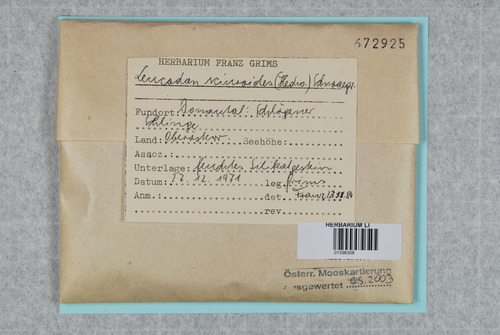 672925
HERBARIUM FRANZ GRIMS
Leucodon sciuroides (Hedw.) Schwaegr.
Fundort: Donautal: Schlögener
Schlinge
Land: Oberösterr. Seehöhe:
Assoz.:
Unterlage: feuchtes Silikatgestein
Datum: 27.12.1971 leg. Grims
Anm.: det. Franz
rev.
HERBARIUM LI
Österr. Mooskartierung
ausgewertet 2003